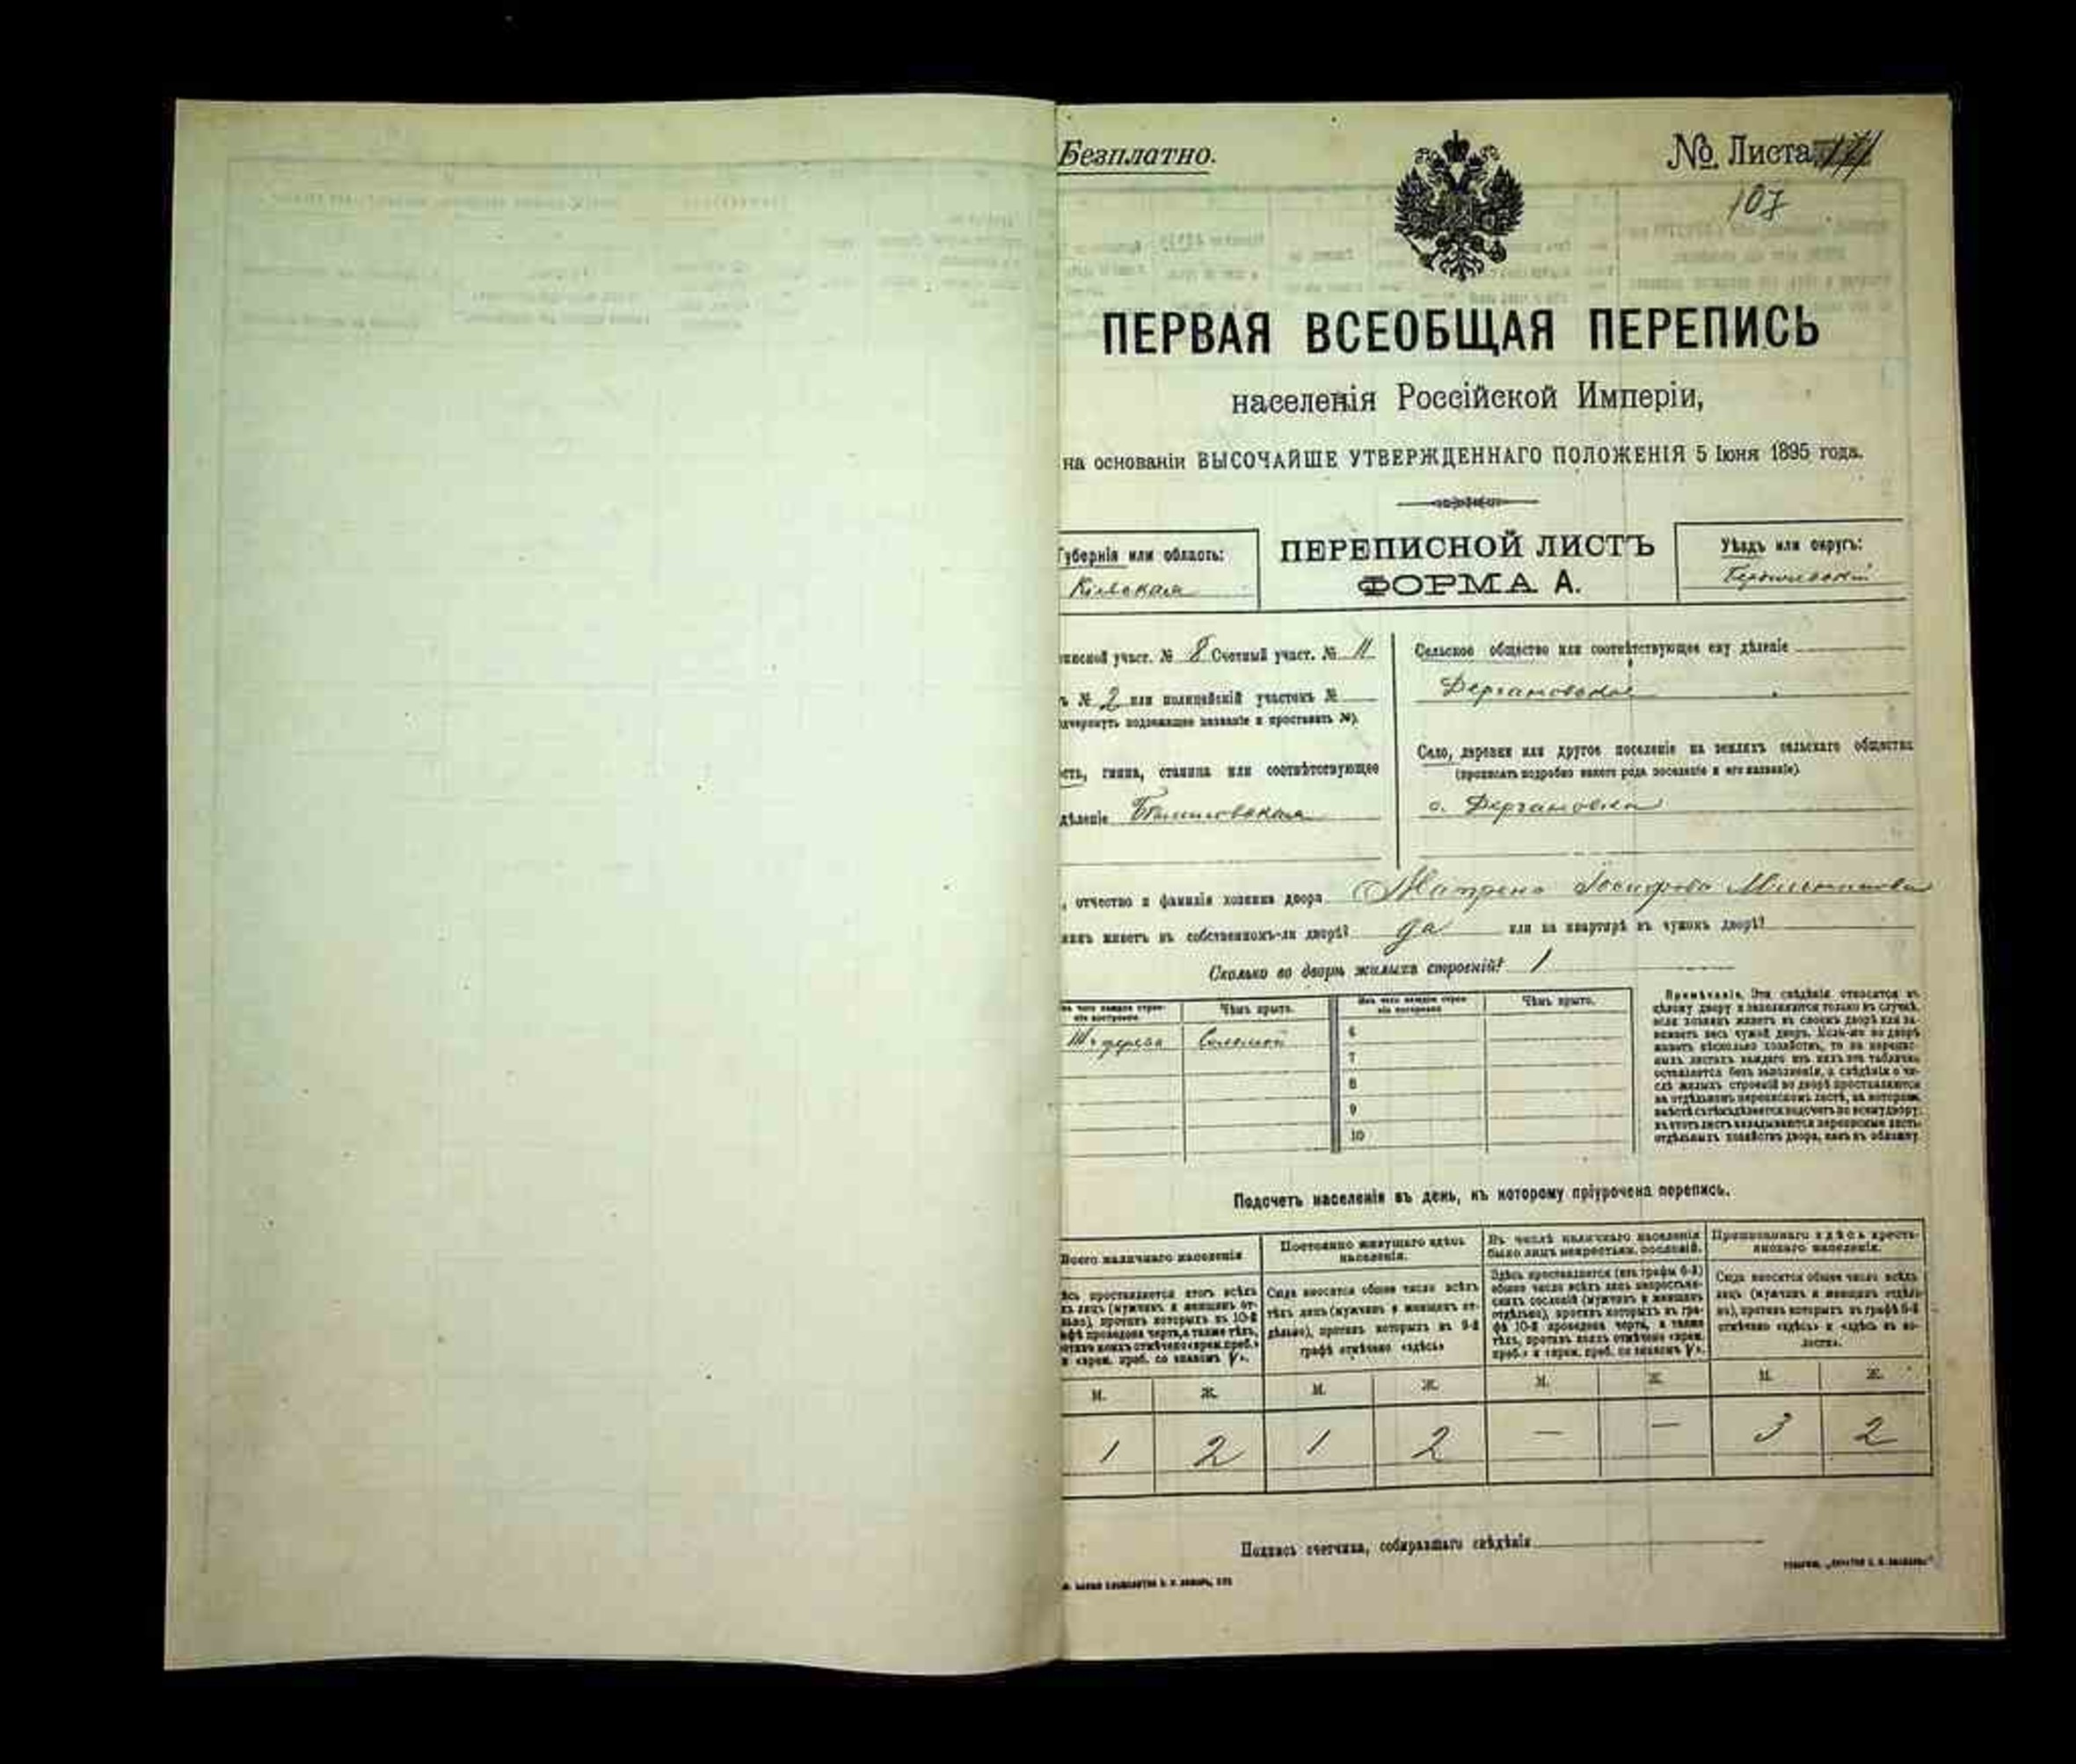 Безплатно.
№ Листа
107
ПЕРВАЯ ВСЕОБЩАЯ ПЕРЕПИСЬ
населенія Россійской Имперіи,
на основаніи ВЫСОЧАЙШЕ УТВЕРЖДЕННАГО ПОЛОЖЕНІЯ 5 Іюня 1895 года.
Губернія или область:
Кіевская
ПЕРЕПИСНОЙ ЛИСТЪ
ФОРМА А.
Уѣздъ или округъ:
участ. № 8 Счетный участ. № 11
№ 2 или полицейскій участокъ №
подлежащее названіе и проставить №).
гмина, станица или соотвѣтствующее
дѣленіе
Сельское общество или соотвѣтствующее ему дѣленіе
Дергановское
Село, деревня или другое поселеніе на земляхъ сельскаго общества
(прописать подробно какого рода поселеніе и его названіе)
с. Дергановка
отчество и фамилія хозяина двора Матрена
живетъ въ собственномъ-ли дворѣ? да или на квартирѣ въ чужомъ дворѣ?
Сколько во дворѣ жилыхъ строеній? 1
Чѣмъ крыто.
Изъ чего каждое строеніе построено
Чѣмъ крыто.
дерева Соломой
6
7
8
9
10
Примѣчаніе. Эти свѣдѣнія относятся къ
цѣлому двору и заполняются только въ случаѣ,
если хозяинъ живетъ въ своемъ дворѣ или за-
нимаетъ весь чужой дворъ. Если-же во дворѣ
живетъ нѣсколько хозяйствъ, то на перепис-
ныхъ листахъ каждаго изъ нихъ эта табличка
оставляется безъ заполненія, а свѣдѣнія о чи-
слѣ жилыхъ строеній во дворѣ проставляются
на отдѣльномъ переписномъ листѣ, на которомъ
вмѣстѣ съ тѣмъ дѣлается подсчетъ по всему двору;
въ этотъ листъ вкладываются переписные листы
отдѣльныхъ хозяйствъ двора, какъ въ обложку
Подсчетъ населенія въ день, къ которому пріурочена перепись.
Всего наличнаго населенія
Постоянно живущаго здѣсь
населенія.
Въ числѣ наличнаго населенія
было лицъ некрестьян. сословій.
Приписаннаго здѣсь кресть-
янскаго населенія.
проставляется итогъ всѣхъ
лицъ (мужчинъ и женщинъ от-
дѣльно), противъ которыхъ въ 10-й
графѣ проведена черта, а также тѣхъ,
противъ коихъ отмѣчено «врем. преб.»
и «врем. преб. со знакомъ V».
Сюда вносится общее число всѣхъ
тѣхъ лицъ (мужчинъ и женщинъ от-
дѣльно), противъ которыхъ въ 9-й
графѣ отмѣчено «здѣсь»
Здѣсь проставляется (изъ графы 6-й)
общее число всѣхъ лицъ некрестьян-
скихъ сословій (мужчинъ и женщинъ
отдѣльно), противъ которыхъ въ гра-
фѣ 10-й проведена черта, а также
тѣхъ, противъ коихъ отмѣчено «врем.
преб.» и «врем. преб. со знакомъ V».
Сюда вносится общее число всѣхъ
лицъ (мужчинъ и женщинъ отдѣль-
но), противъ которыхъ въ графѣ 8-й
отмѣчено «здѣсь» и «здѣсь въ во-
лости».
М. Ж. М. Ж. М. Ж. М. Ж.
1 2 1 2 — — 3 2
Подпись счетчика, собиравшаго свѣдѣнія